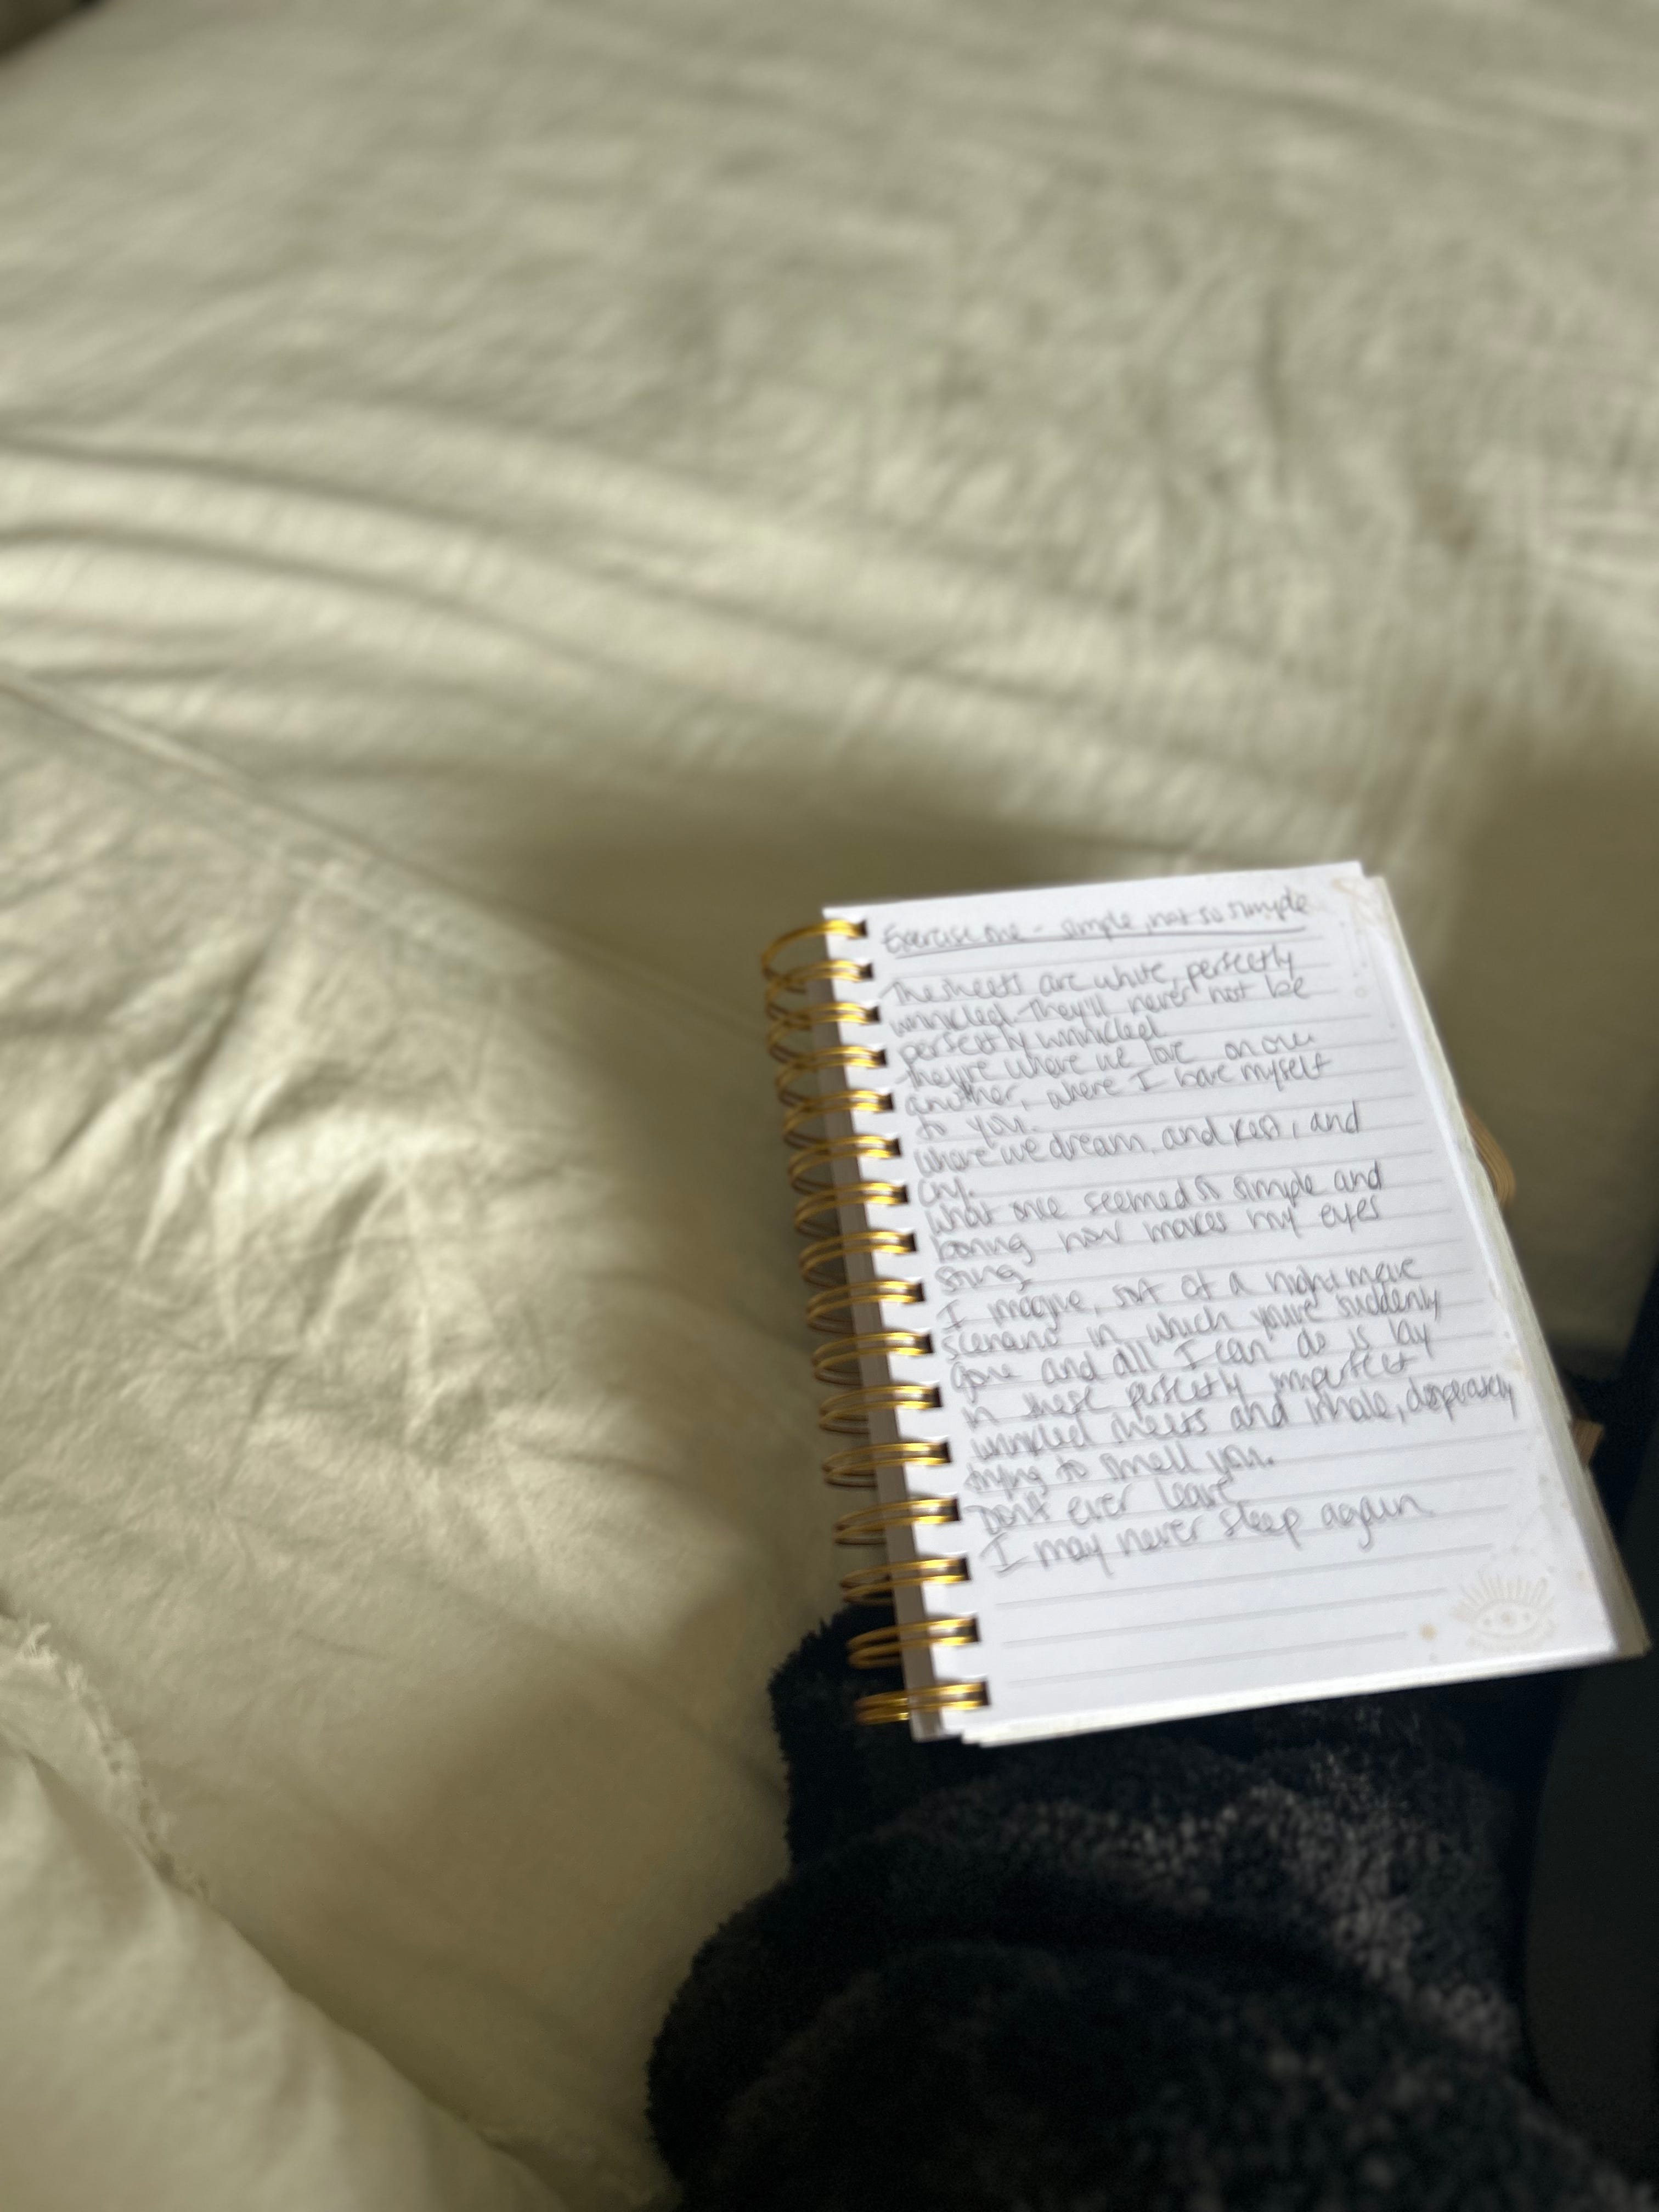 Exercise one - simple, not so simple
The sheets are white, perfectly
wrinkled. They'll never not be
perfectly wrinkled
They're where we love on one
another, where I bare myself
to you.
Where we dream, and rest, and
cry.
What once seemed so simple and
boring now makes my eyes
sting.
I imagine, sort of a nightmare
scenario in which you're suddenly
gone and all I can do is lay
in these perfectly imperfect
wrinkled sheets and inhale, desperately
trying to smell you.
Don't ever leave
I may never sleep again